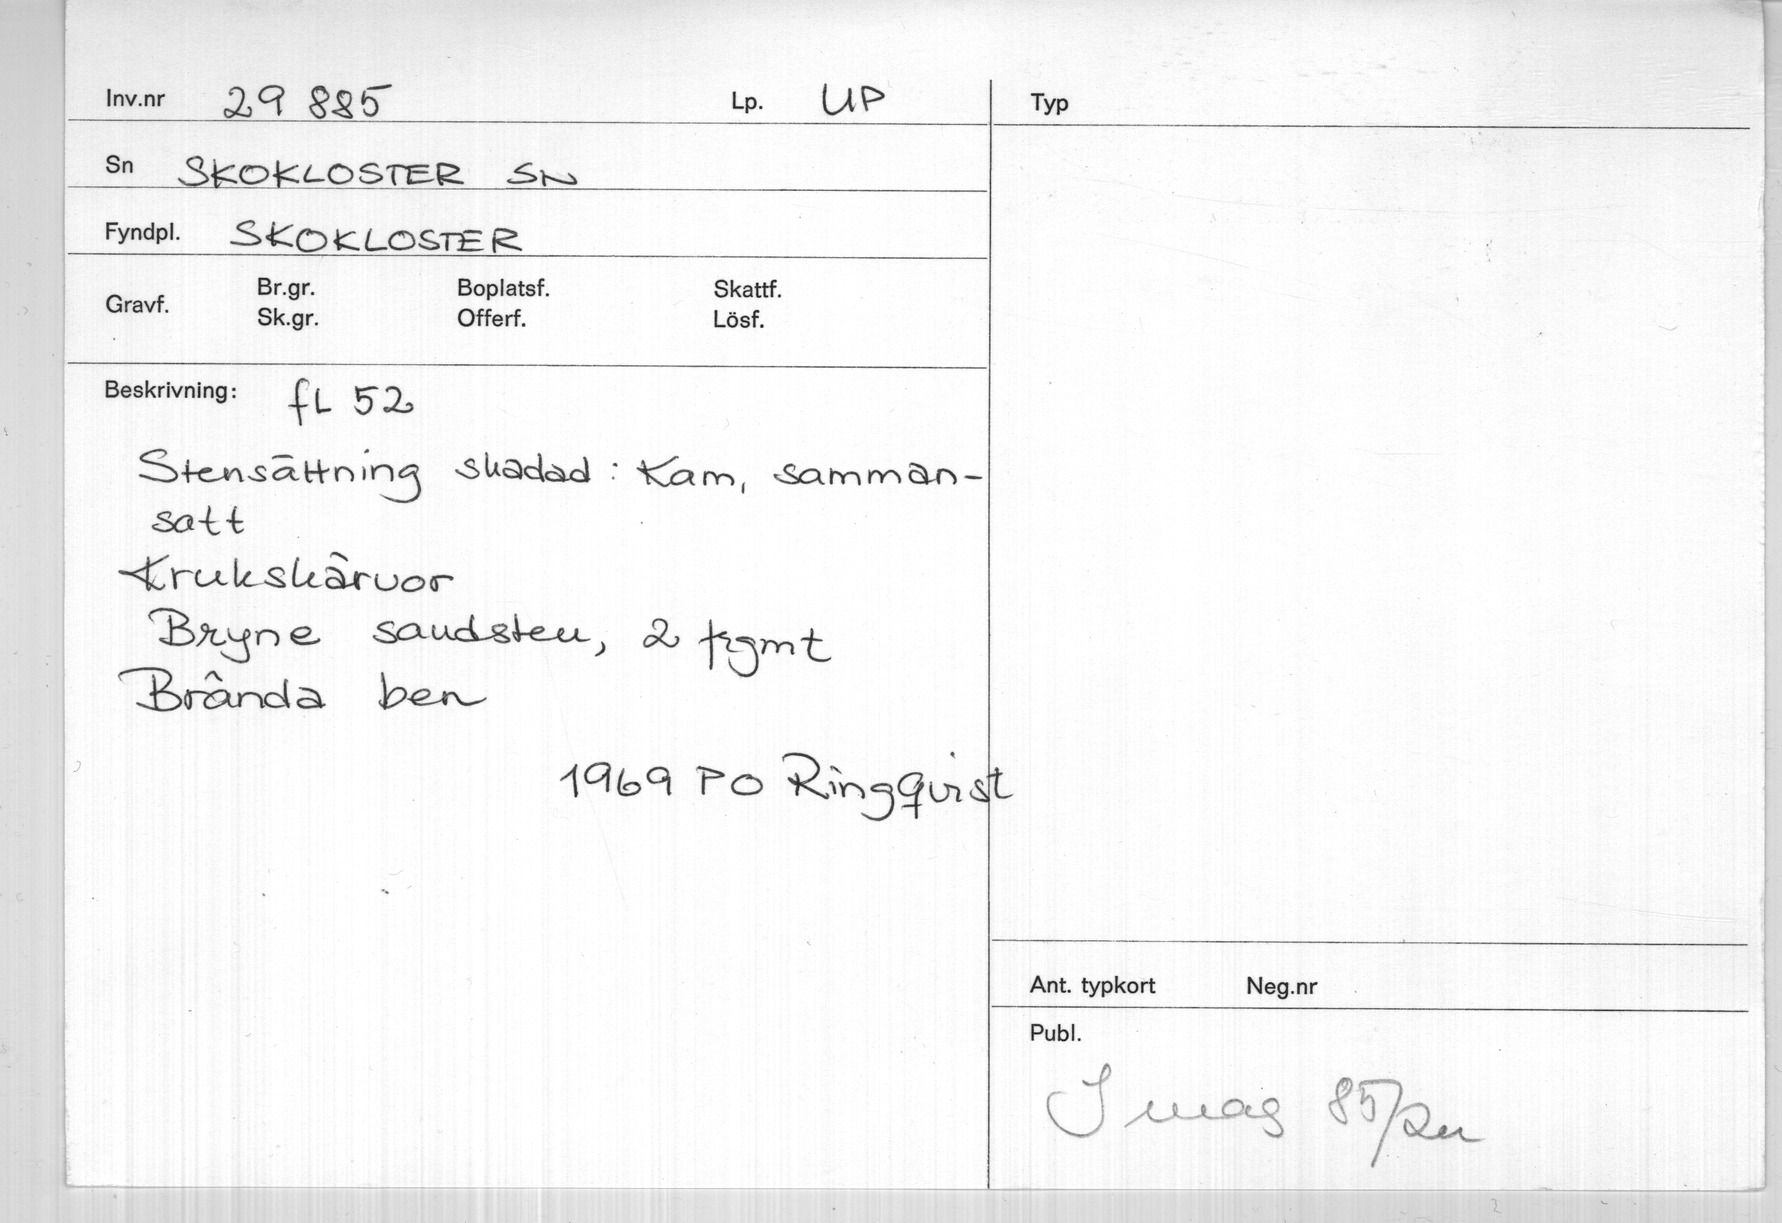 Inv.nr 29 885 Lp. UP
Sn SKOKLOSTER SN
Fyndpl. SKOKLOSTER
Gravf. Br.gr. Boplatsf. Skattf.
Sk.gr. Offerf. Lösf.
Beskrivning: fL 52
Stensättning skadad : Kam, samman-
satt
Krukskärvor
Bryne sandsten, 2 frgmt
Brända ben
1969 PO Ringqvist
Typ
Ant. typkort Neg.nr
Publ.
I mag 85